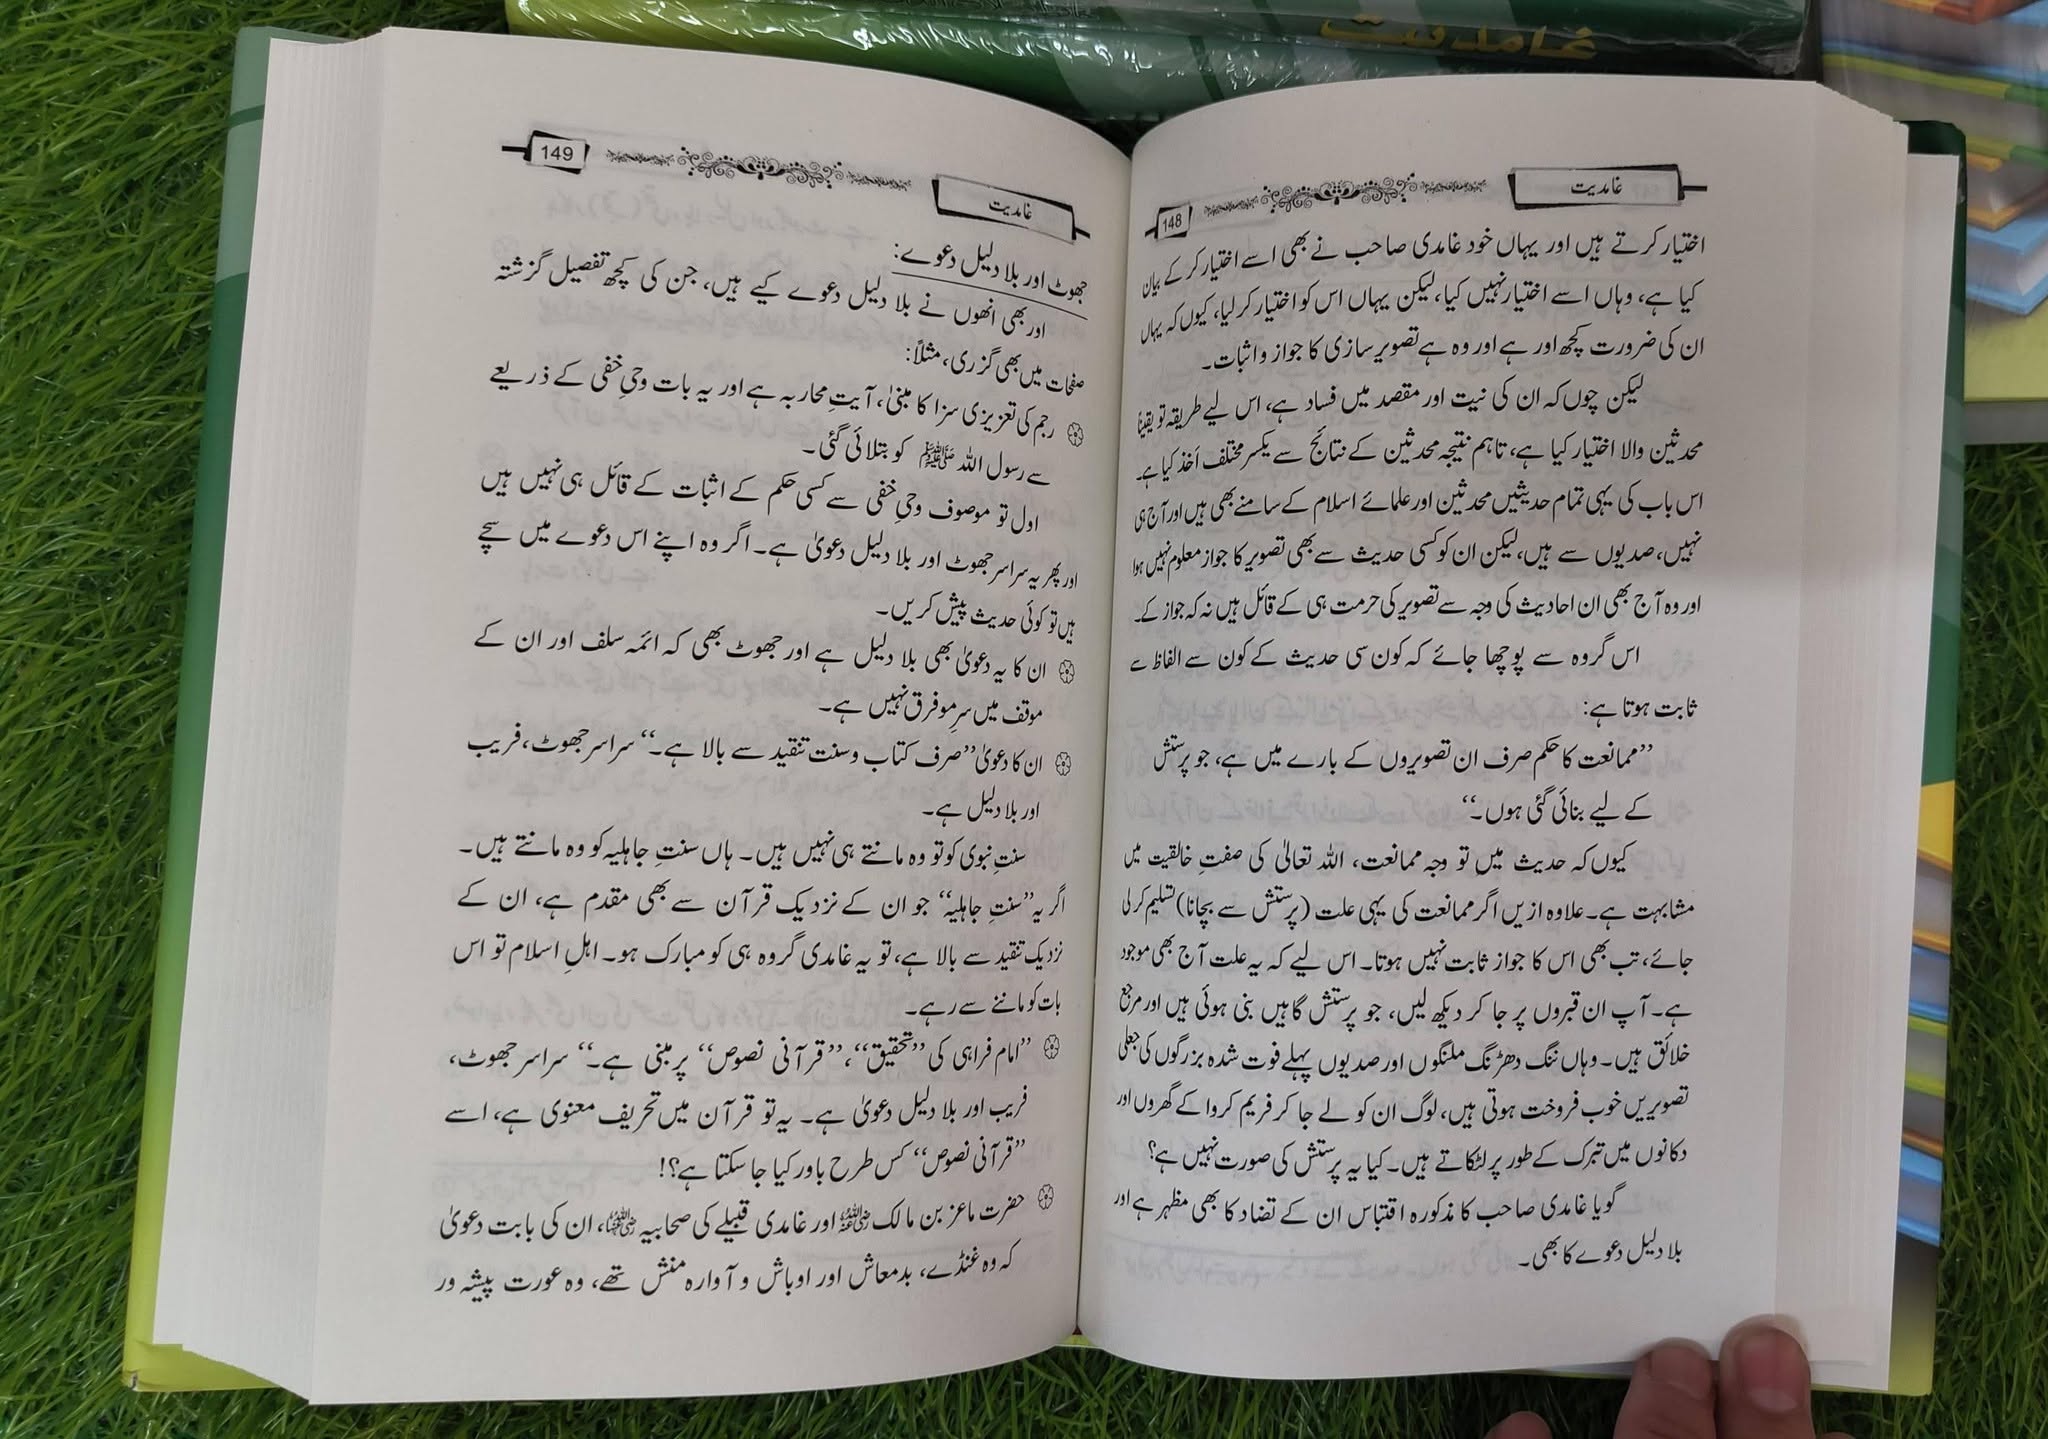 غامدیت
غامدیت
148
اختیار کرتے ہیں اور یہاں خود غامدی صاحب نے بھی اسے اختیار کر کے بیان
کیا ہے، وہاں اسے اختیار نہیں کیا، لیکن یہاں اس کو اختیار کر لیا، کیوں کہ یہاں
ان کی ضرورت کچھ اور ہے اور وہ ہے تصویر سازی کا جواز و اثبات۔
لیکن چوں کہ ان کی نیت اور مقصد میں فساد ہے، اس لیے طریقہ تو یقیناً
محدثین والا اختیار کیا ہے، تاہم نتیجہ محدثین کے نتائج سے یکسر مختلف اَخذ کیا ہے۔
اس باب کی یہی تمام حدیثیں محدثین اور علمائے اسلام کے سامنے بھی ہیں اور آج ہی
نہیں، صدیوں سے ہیں، لیکن ان کو کسی حدیث سے بھی تصویر کا جواز معلوم نہیں ہوا
اور وہ آج بھی ان احادیث کی وجہ سے تصویر کی حرمت ہی کے قائل ہیں نہ کہ جواز کے۔
اس گروہ سے پوچھا جائے کہ کون سی حدیث کے کون سے الفاظ سے
ثابت ہوتا ہے:
’’ممانعت کا حکم صرف ان تصویروں کے بارے میں ہے، جو پرستش
کے لیے بنائی گئی ہوں۔‘‘
کیوں کہ حدیث میں تو وجہ ممانعت، اللہ تعالیٰ کی صفتِ خالقیت میں
مشابہت ہے۔ علاوہ ازیں اگر ممانعت کی یہی علت (پرستش سے بچانا) تسلیم کر لی
جائے، تب بھی اس کا جواز ثابت نہیں ہوتا۔ اس لیے کہ یہ علت آج بھی موجود
ہے۔ آپ ان قبروں پر جا کر دیکھ لیں، جو پرستش گاہیں بنی ہوئی ہیں اور مرجع
خلائق ہیں۔ وہاں ننگ دھڑنگ ملنگوں اور صدیوں پہلے فوت شدہ بزرگوں کی جعلی
تصویریں خوب فروخت ہوتی ہیں، لوگ ان کو لے جا کر فریم کروا کے گھروں اور
دکانوں میں تبرک کے طور پر لٹکاتے ہیں۔ کیا یہ پرستش کی صورت نہیں ہے؟
گویا غامدی صاحب کا مذکورہ اقتباس ان کے تضاد کا بھی مظہر ہے اور
بلا دلیل دعوے کا بھی۔
غامدیت
149
جھوٹ اور بلا دلیل دعوے:
اور بھی انھوں نے بلا دلیل دعوے کیے ہیں، جن کی کچھ تفصیل گزشتہ
صفحات میں بھی گزری، مثلاً:
رجم کی تعزیری سزا کا مبنیٰ، آیتِ محاربہ ہے اور یہ بات وحیِ خفی کے ذریعے
سے رسول اللہ ﷺ کو بتلائی گئی۔
اول تو موصوف وحیِ خفی سے کسی حکم کے اثبات کے قائل ہی نہیں ہیں
اور پھر یہ سراسر جھوٹ اور بلا دلیل دعویٰ ہے۔ اگر وہ اپنے اس دعوے میں سچے
ہیں تو کوئی حدیث پیش کریں۔
ان کا یہ دعویٰ بھی بلا دلیل ہے اور جھوٹ بھی کہ ائمہ سلف اور ان کے
موقف میں سرِ مو فرق نہیں ہے۔
ان کا دعویٰ ’’صرف کتاب و سنت تنقید سے بالا ہے۔‘‘ سراسر جھوٹ، فریب
اور بلا دلیل ہے۔
سنتِ نبوی کو تو وہ مانتے ہی نہیں ہیں۔ ہاں سنتِ جاہلیہ کو وہ مانتے ہیں۔
اگر یہ ’’سنتِ جاہلیہ‘‘ جو ان کے نزدیک قرآن سے بھی مقدم ہے، ان کے
نزدیک تنقید سے بالا ہے، تو یہ غامدی گروہ ہی کو مبارک ہو۔ اہلِ اسلام تو اس
بات کو ماننے سے رہے۔
’’امام فراہی کی ’’تحقیق‘‘، ’’قرآنی نصوص‘‘ پر مبنی ہے۔‘‘ سراسر جھوٹ،
فریب اور بلا دلیل دعویٰ ہے۔ یہ تو قرآن میں تحریف معنوی ہے، اسے
’’قرآنی نصوص‘‘ کس طرح باور کیا جا سکتا ہے؟!
حضرت ماعز بن مالک رضی اللہ عنہ اور غامدی قبیلے کی صحابیہ رضی اللہ عنہا، ان کی بابت دعویٰ
کہ وہ غنڈے، بدمعاش اور اوباش و آوارہ منش تھے، وہ عورت پیشہ ور